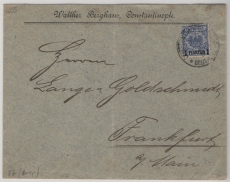 Walther Berghaus, Constantinople.
Herren
Lange & Goldschmidt,
Frankfurt
a/Main